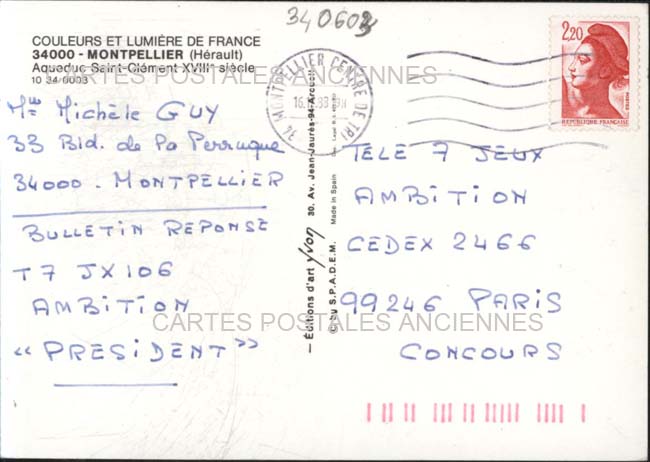 340603
COULEURS ET LUMIÈRE DE FRANCE
34000 - MONTPELLIER (Hérault)
Aqueduc Saint-Clément XVIIIe siècle
10 34 0003
CARTES POSTALES ANCIENNES
Mlle Michèle GUY
33 Bld. de la Perruque
34000 - MONTPELLIER
BULLETIN REPONSE
T7 JX106
AMBITION
"PRESIDENT"
34 MONTPELLIER CENTRE DE TRI
— Éditions d'art yvon 30, Av. Jean-Jaurès-94-Arcueil
© by S.P.A.D.E.M. Made in Spain
2,20
RÉPUBLIQUE FRANÇAISE
TELE 7 JEUX
AMBITION
CEDEX 2466
99246 PARIS
CONCOURS
CARTES POSTALES ANCIENNES